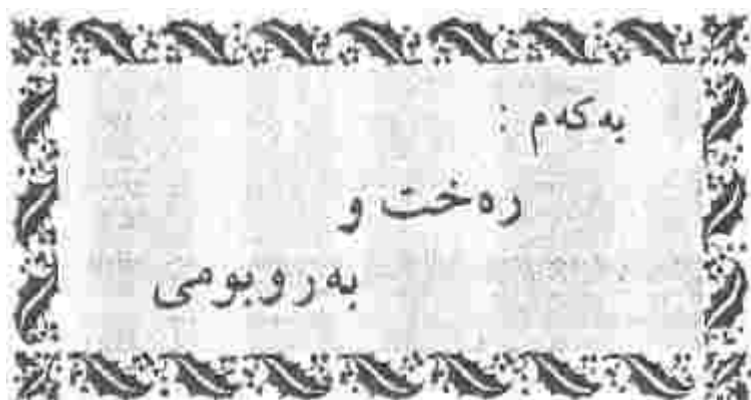 یەکەم :
رەخت و
بەروبومی